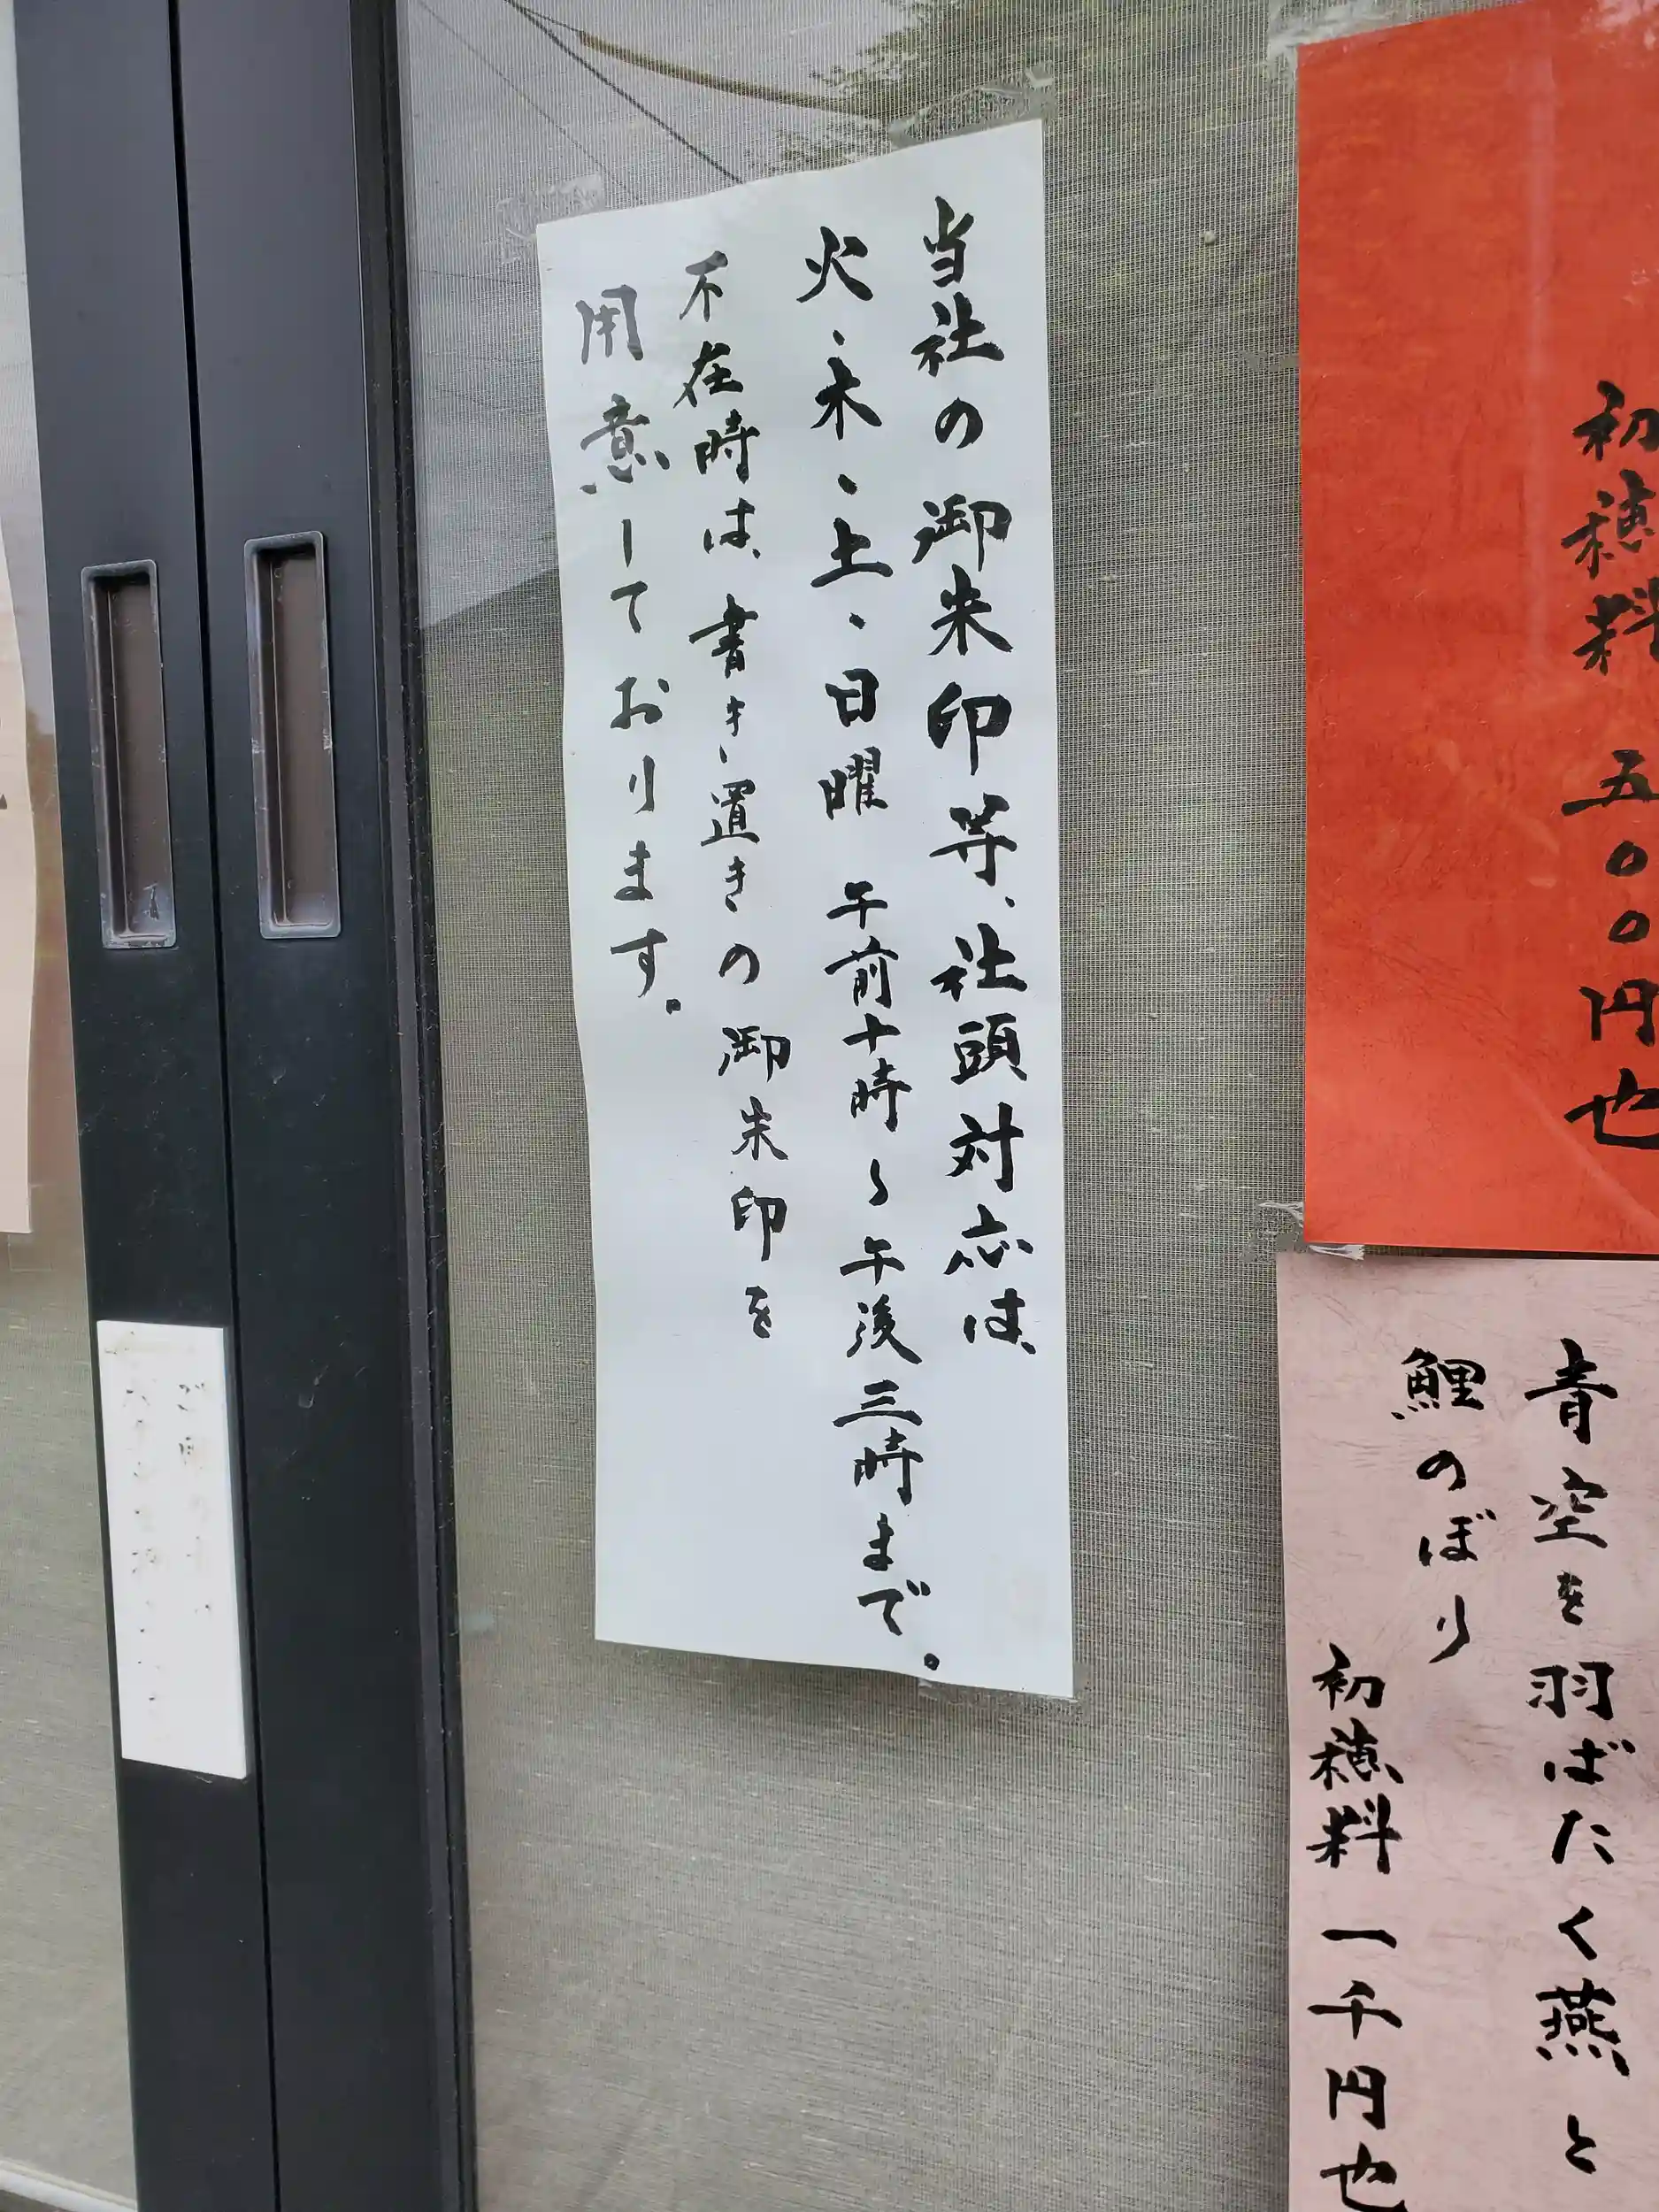 初穂料 五〇〇円也
青空を羽ばたく燕と
鯉のぼり
初穂料 一千円也
当社の御朱印等、社頭対応は、
火、木、土、日曜 午前十時〜午後三時まで。
不在時は、書き置きの御朱印を
用意しております。